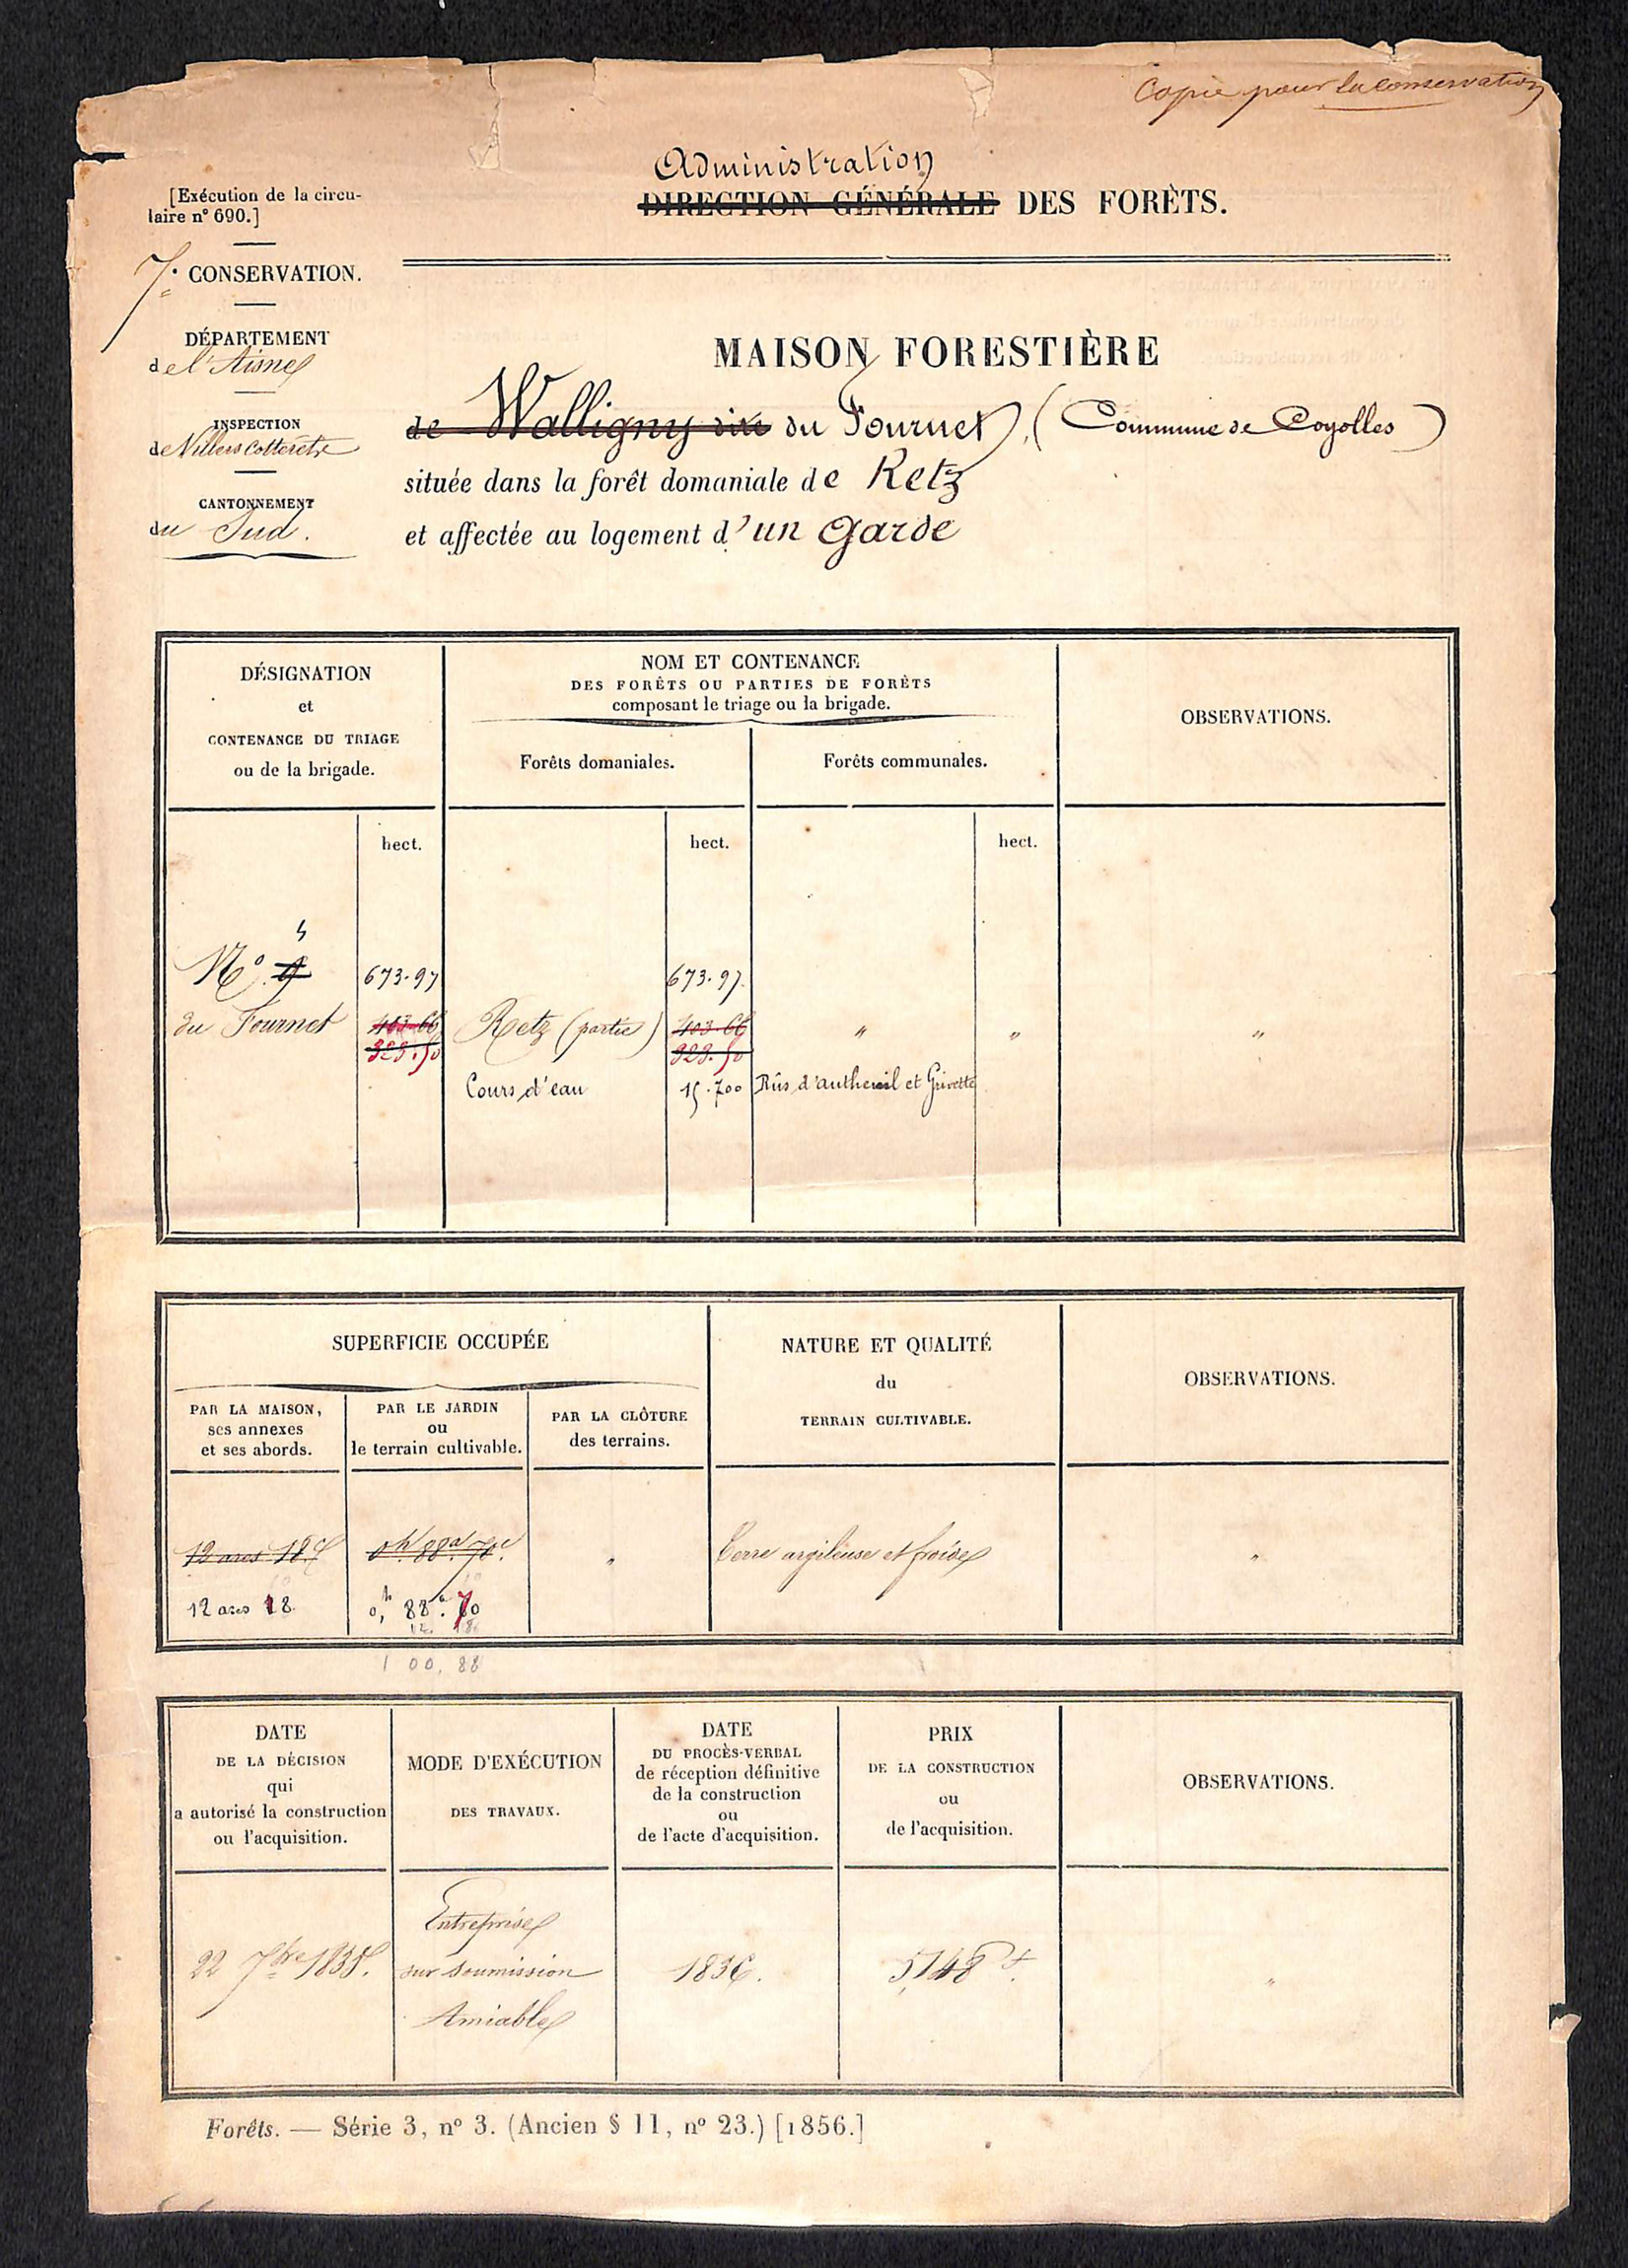 Copie pour la conservation
Administration
DIRECTION GÉNÉRALE DES FORÊTS.
[Exécution de la circu-
laire n° 690.]
7e CONSERVATION.
DÉPARTEMENT
de l'Aisne
INSPECTION
de Villers Cotterêts
CANTONNEMENT
du Sud.
MAISON FORESTIÈRE
de Walligny dite du Fournet, (Commune de Coyolles)
située dans la forêt domaniale de Retz
et affectée au logement d'un Garde
DÉSIGNATION
et
CONTENANCE DU TRIAGE
ou de la brigade.
NOM ET CONTENANCE
DES FORÊTS OU PARTIES DE FORÊTS
composant le triage ou la brigade.
Forêts domaniales.
Forêts communales.
OBSERVATIONS.
hect.
hect.
hect.
N° 9
673.97
673.97.
du Fournet
403.66
Retz (partie)
403.66
"
"
"
323.50
323.50
Cours d'eau
15.700
Rûs d'autheuil et Grivette
SUPERFICIE OCCUPÉE
PAR LA MAISON,
ses annexes
et ses abords.
PAR LE JARDIN
ou
le terrain cultivable.
PAR LA CLÔTURE
des terrains.
NATURE ET QUALITÉ
du
TERRAIN CULTIVABLE.
OBSERVATIONS.
12 ares 18c
0h. 88a. 70c.
"
Terre argileuse et froide
"
12 ares 18
0,h 88a. 70
1 00, 88
DATE
DE LA DÉCISION
qui
a autorisé la construction
ou l'acquisition.
MODE D'EXÉCUTION
DES TRAVAUX.
DATE
DU PROCÈS-VERBAL
de réception définitive
de la construction
ou
de l'acte d'acquisition.
PRIX
DE LA CONSTRUCTION
ou
de l'acquisition.
OBSERVATIONS.
22 7bre 1835.
Entreprise
sur soumission
Amiable
1836.
5,148 f.
"
Forêts. — Série 3, n° 3. (Ancien § 11, n° 23.) [1856.]